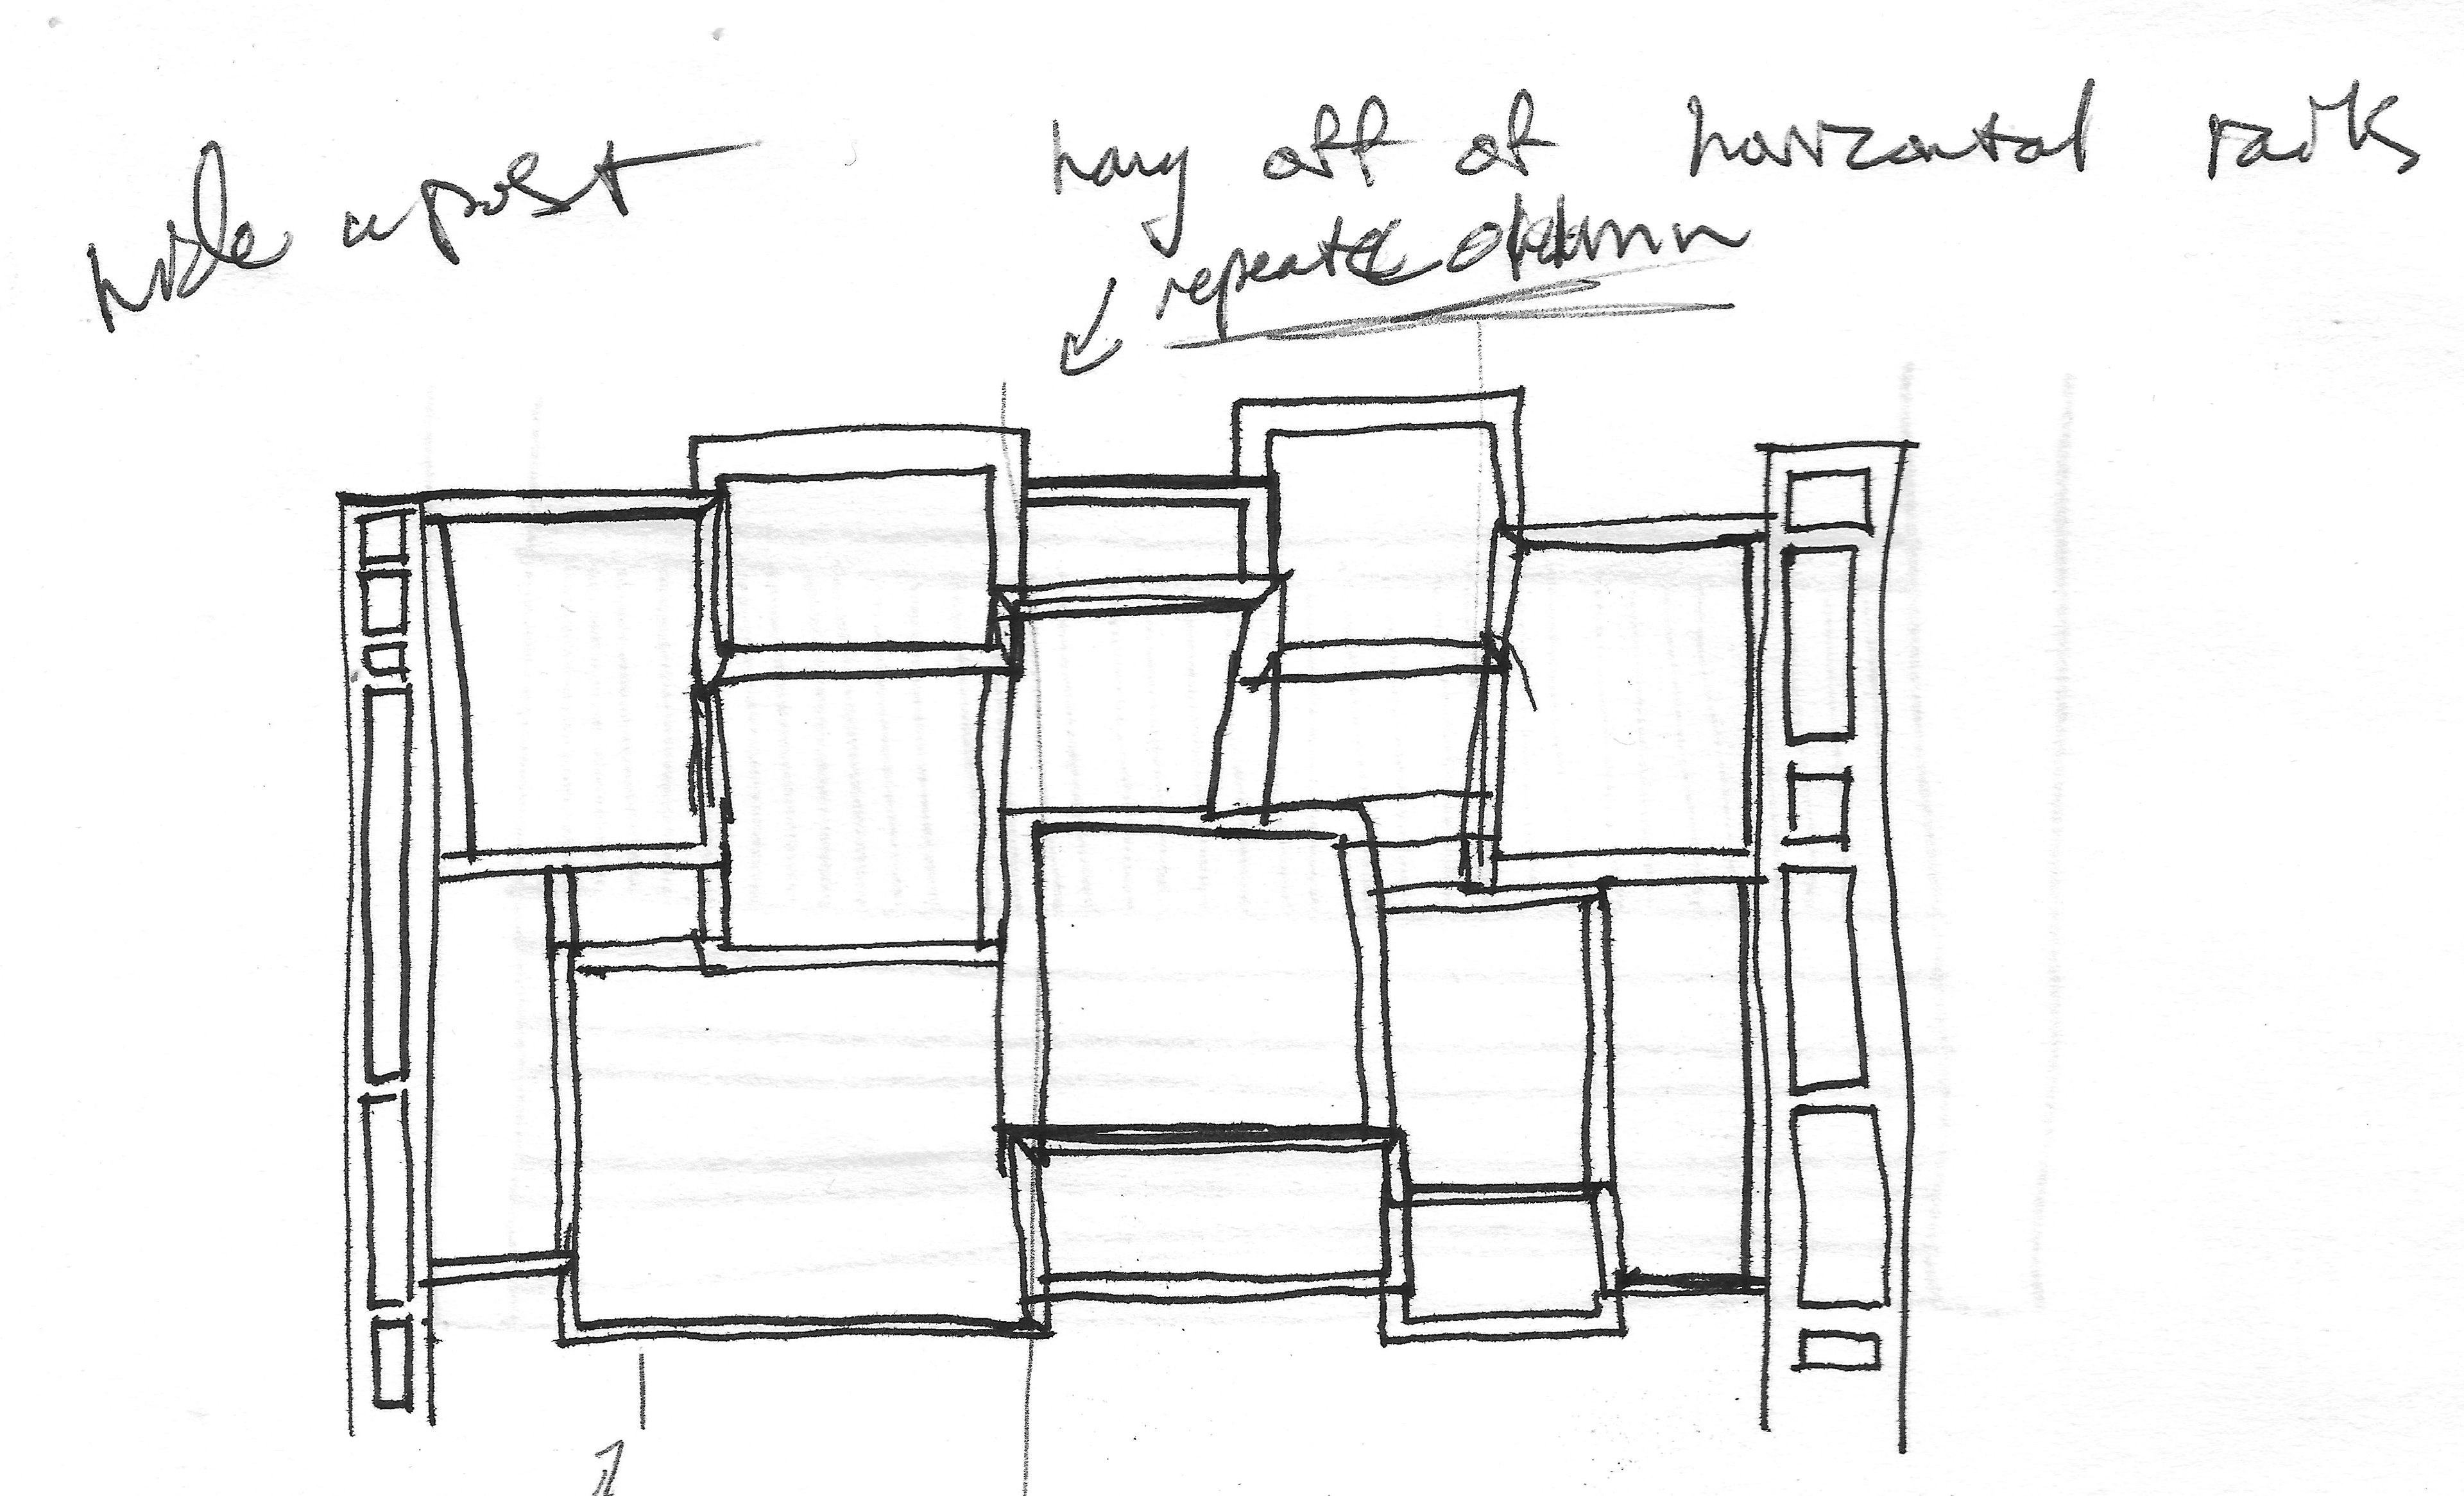 hide a post
hang off of horizontal rails
repeat column